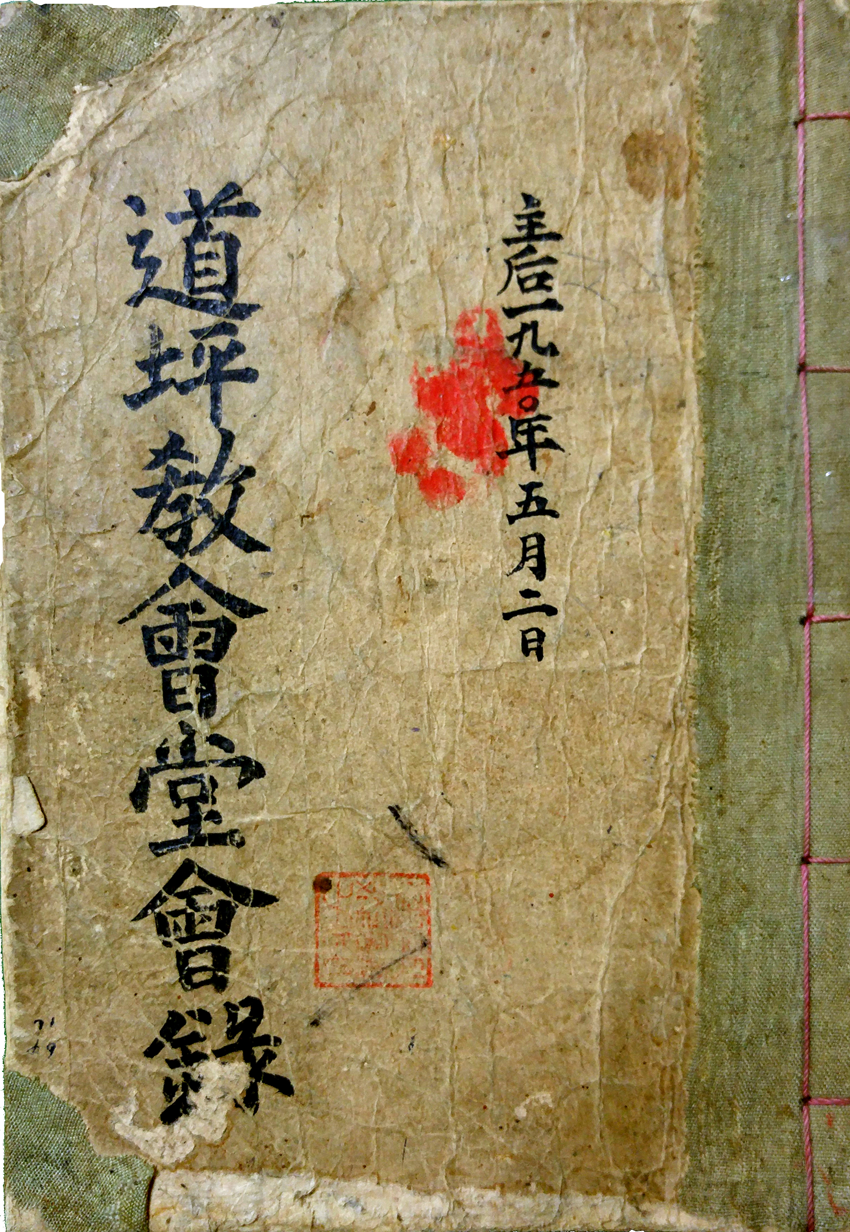 主后一九五〇年五月二日
道坪敎會堂會錄